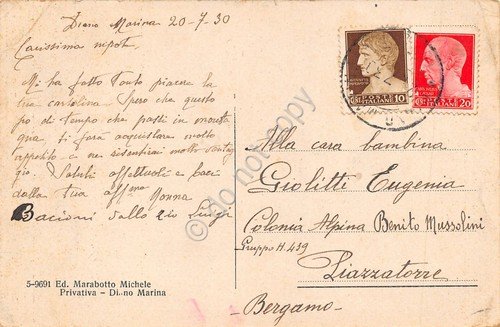 Diano Marina 20-7-30
Carissima nipote
Mi ha fatto tanto piacere la
tua cartolina. Spero che questo
po di tempo che passi in monta
gna ti farà acquistare molto
appetito e ne risentirai molto vantag
gio. Saluti affettuosi e baci
dalla tua aff.ma Nonna
Bacioni dallo zio Luigi
5-9691 Ed. Marabotto Michele
Privativa - Diano Marina
POSTE
ITALIANE 10
ITALIANE 20
Alla cara bambina
Giolitti Eugenia
Colonia Alpina Benito Mussolini
Gruppo H. 439
Piazzatorre
Bergamo